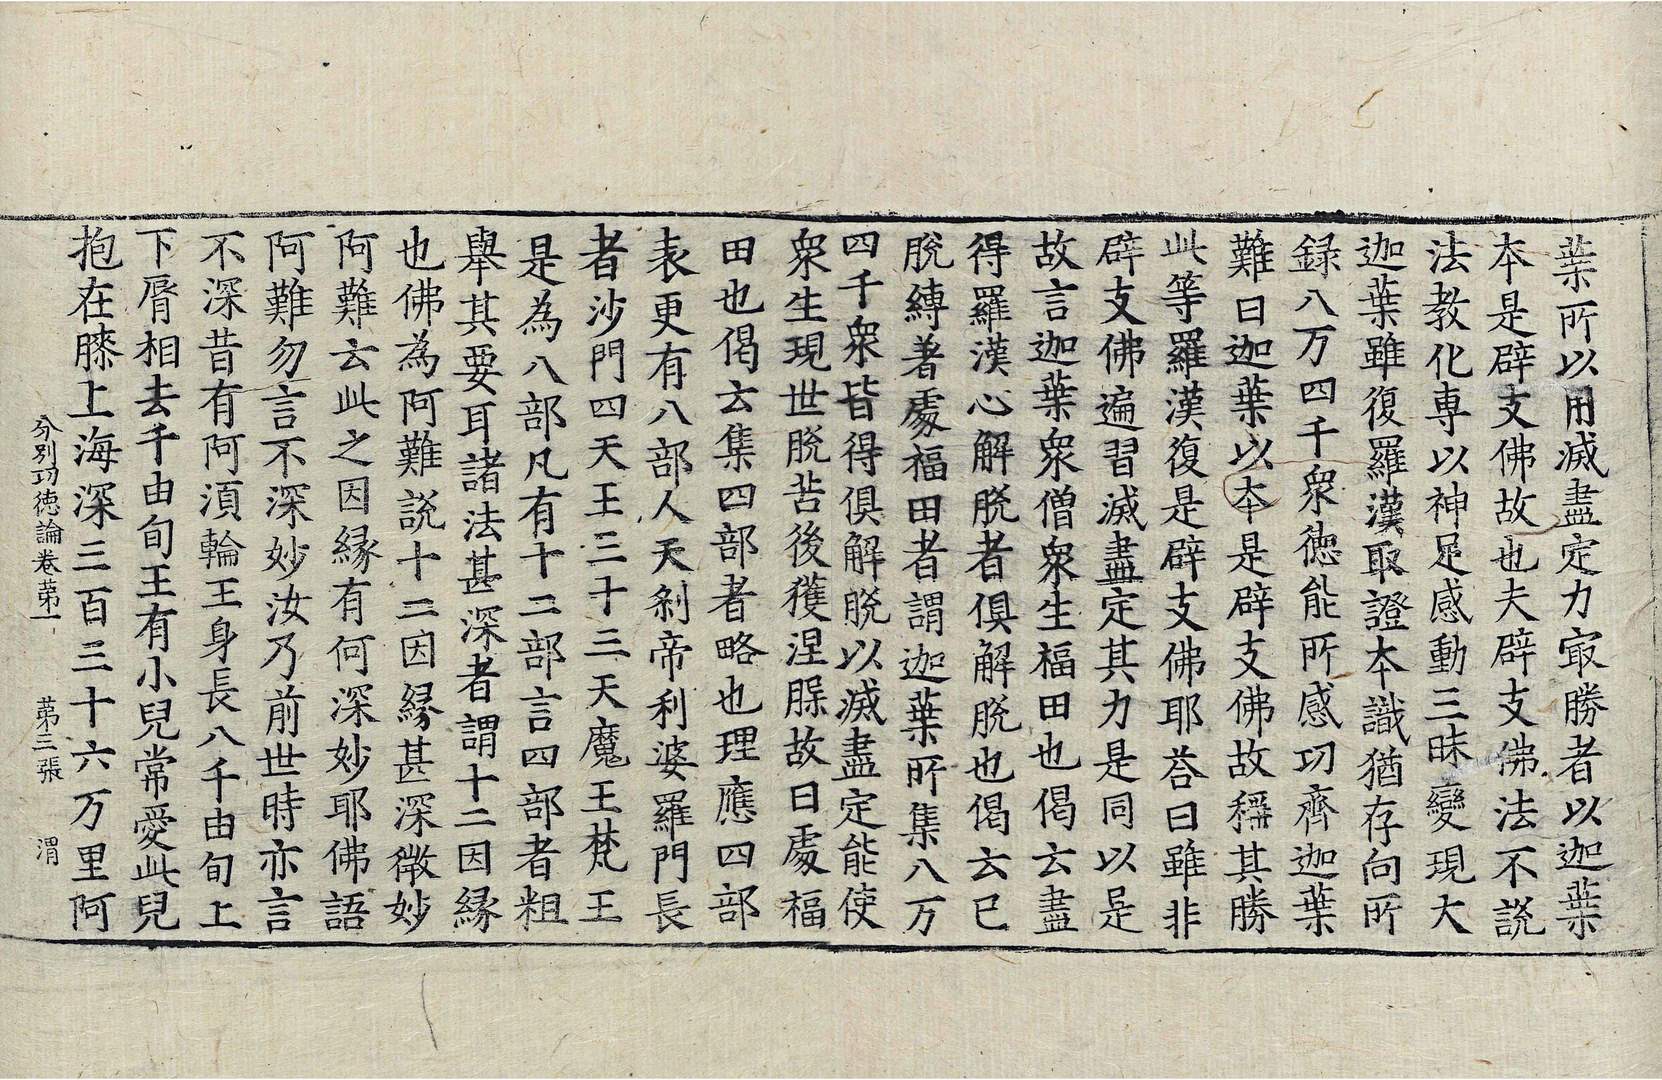 葉所以用滅盡定力㝡勝者以迦葉
本是辟支佛故也夫辟支佛法不說
法教化専以神足感動三昧變現大
迦葉雖復羅漢取證本識猶存向所
録八万四千衆徳能所感功齊迦葉
難曰迦葉以本是辟支佛故稱其勝
此等羅漢復是辟支佛耶荅曰雖非
辟支佛遍習滅盡定其力是同以是
故言迦葉衆僧衆生福田也偈云盡
得羅漢心解脫者俱解脫也偈云已
脫縛著處福田者謂迦葉所集八万
四千衆皆得俱解脫以滅盡定能使
衆生現世脫苦後獲涅㬷故曰處福
田也偈云集四部者略也理應四部
表更有八部人天剎帝利婆羅門長
者沙門四天王三十三天魔王梵王
是為八部凡有十二部言四部者粗
舉其要耳諸法甚深者謂十二因緣
也佛為阿難說十二因緣甚深微妙
阿難云此之因緣有何深妙耶佛語
阿難勿言不深妙汝乃前世時亦言
不深昔有阿湏輪王身長八千由旬上
下脣相去千由旬王有小兒常愛此兒
抱在膝上海深三百三十六万里阿
分別功徳論卷苐一　苐三張　渭